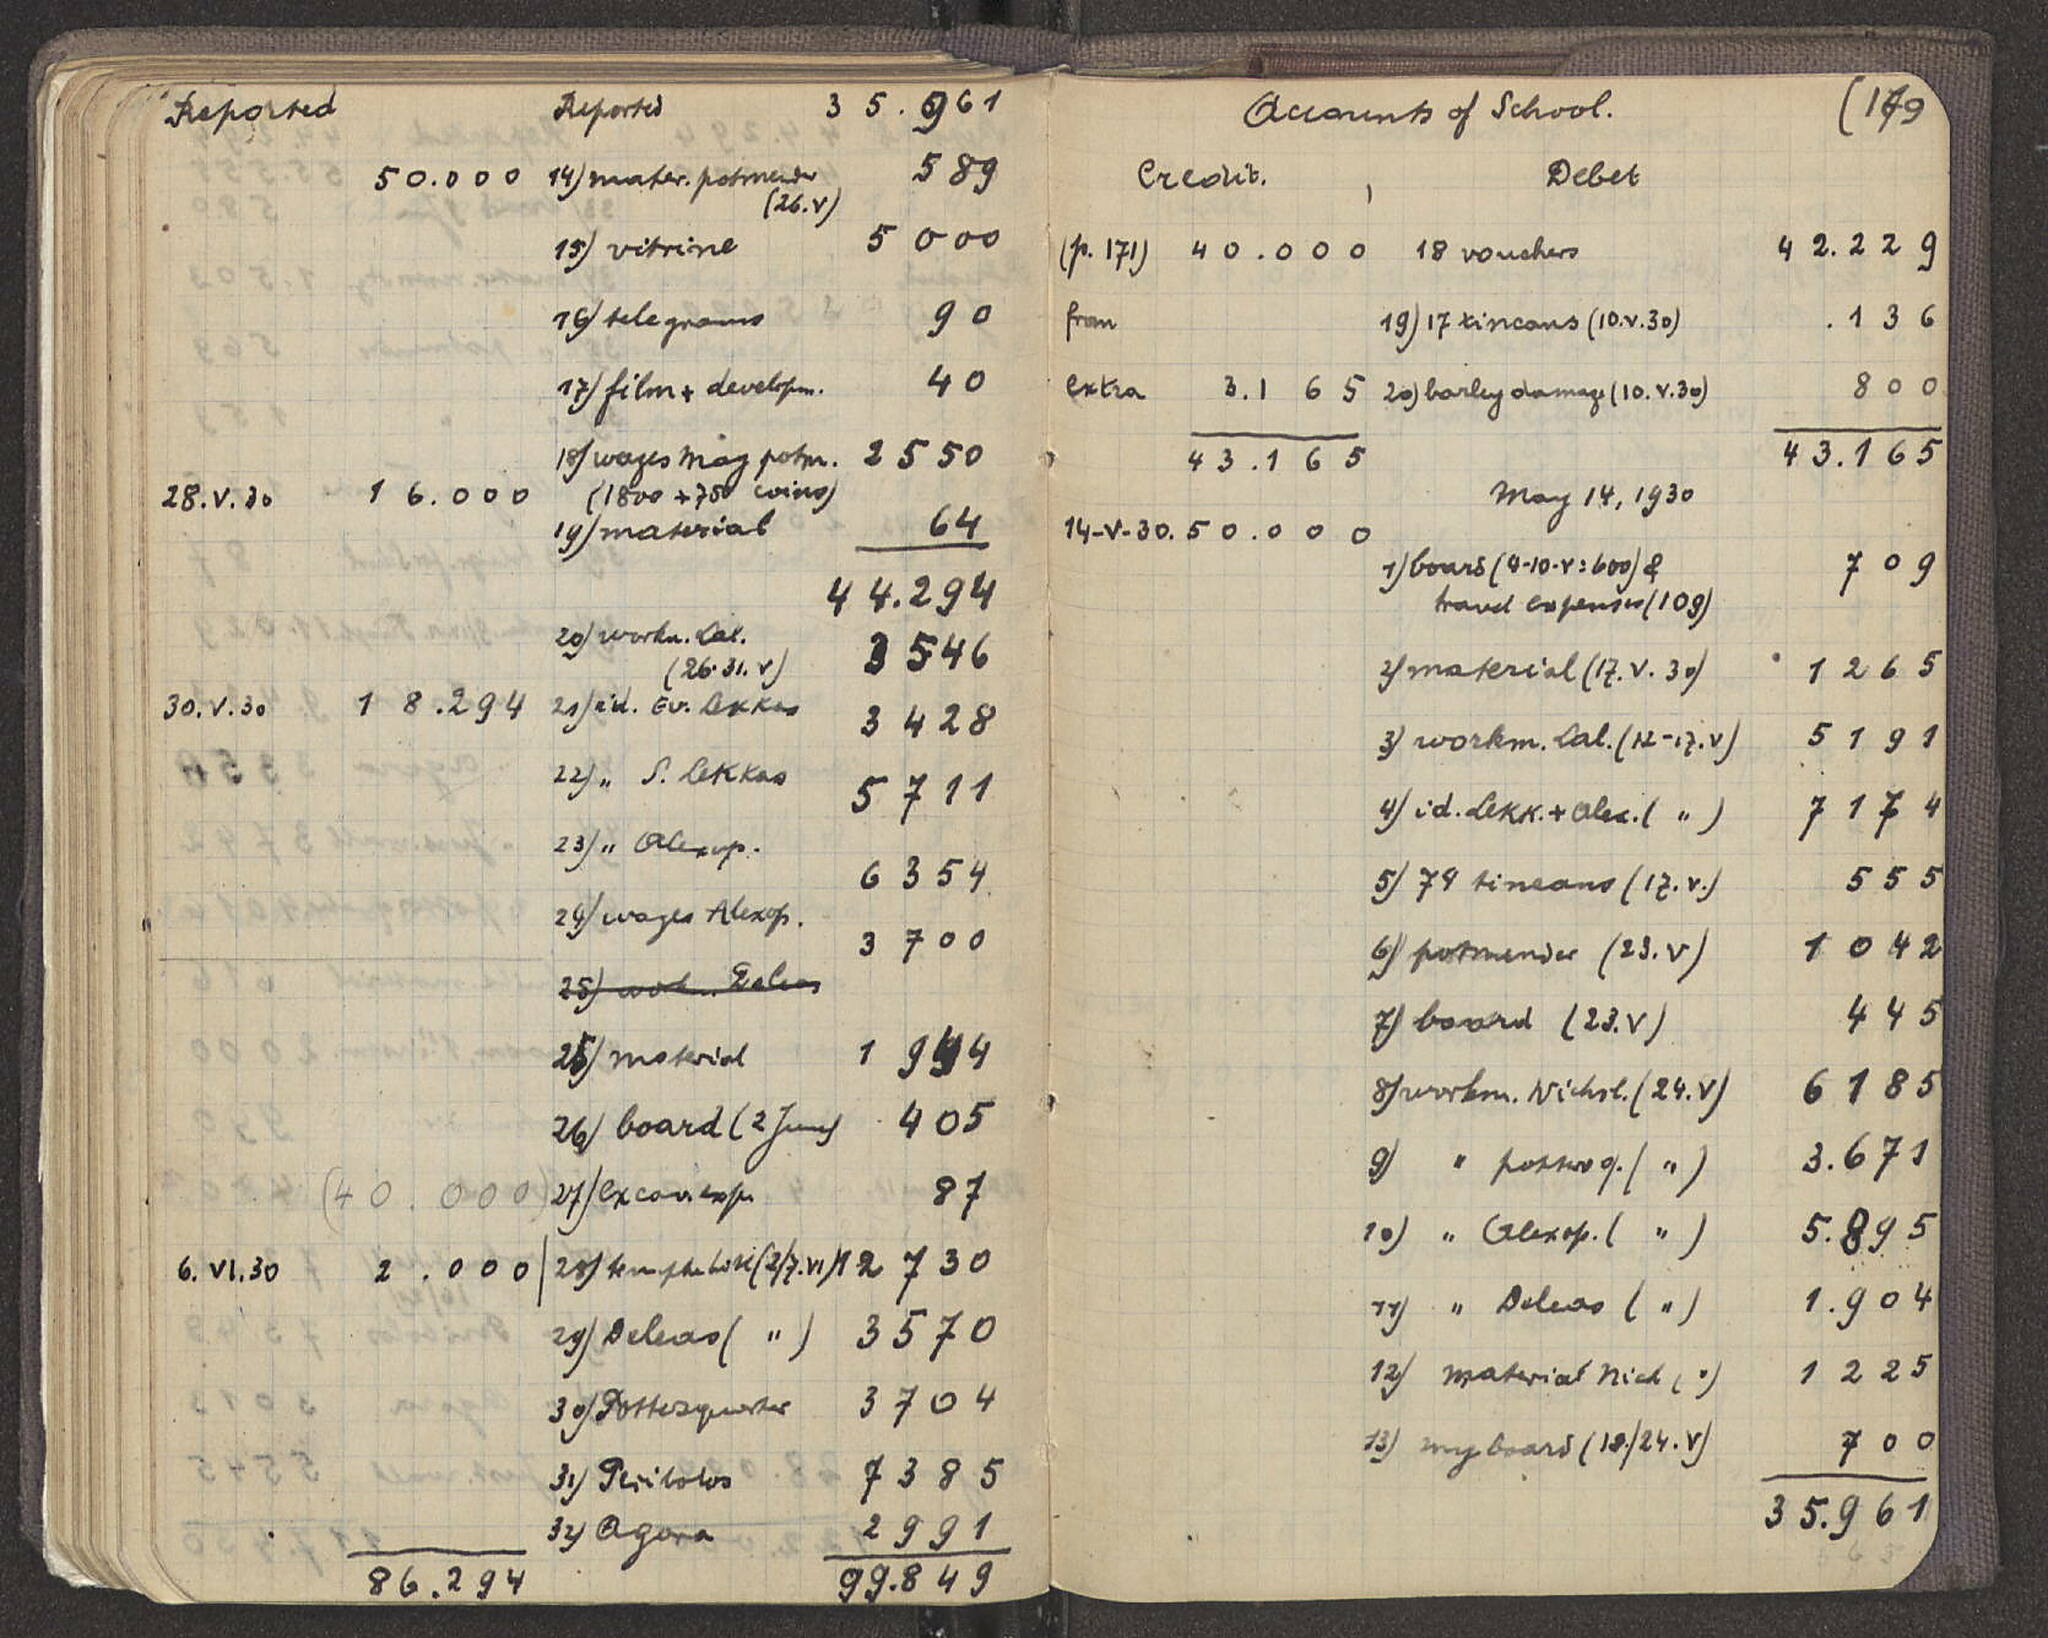 Reported Reported 35.961
50.000 14) mater. potmender 589
(26.V)
15) vitrine 5000
16) telegrams 90
17) film + developm. 40
18) wages Mag potm. 2550
28.V.30 16.000 (1800 + 750 coins)
19) material 64
44.294
20) workm. Cal. 3546
(26-31.V)
30.V.30 18.294 21) id. Ev. Lekkas 3428
22) " S. Lekkas 5711
23) " Alexop. 6354
24) wages Alexop. 3700
25) work. Deleas
25) material 1944
26) board (2 June) 405
(40.000) 27) excav. exp. 87
6.VI.30 2.000 28) temple hill (2/7.VI) 12730
29) Deleas ( " ) 3570
30) Pottersquarter 3704
31) Peribolos 7385
32) Agora 2991
86.294 99.849
Accounts of School. (179
Credit. Debet
(p. 171) 40.000 18 vouchers 42.229
from 19) 17 tincans (10.V.30) .136
extra 3.165 20) barley damage (10.V.30) 800
43.165 43.165
May 14, 1930
14-V-30. 50.000
1) board (4-10-V: 600) & 709
travel expenses (109)
2) material (17.V.30) 1265
3) workm. Cal. (12-17.V) 5191
4) id. Lekk. + Alex. ( " ) 7174
5) 74 tincans (17.V.) 555
6) potmender (23.V) 1042
7) board (23.V) 445
8) workm. Nichol. (24.V) 6185
9) " pottersq. ( " ) 3.671
10) " Alexop. ( " ) 5.895
11) " Deleas ( " ) 1.904
12) material Nich ( " ) 1225
13) my board (18/24.V) 700
35.961